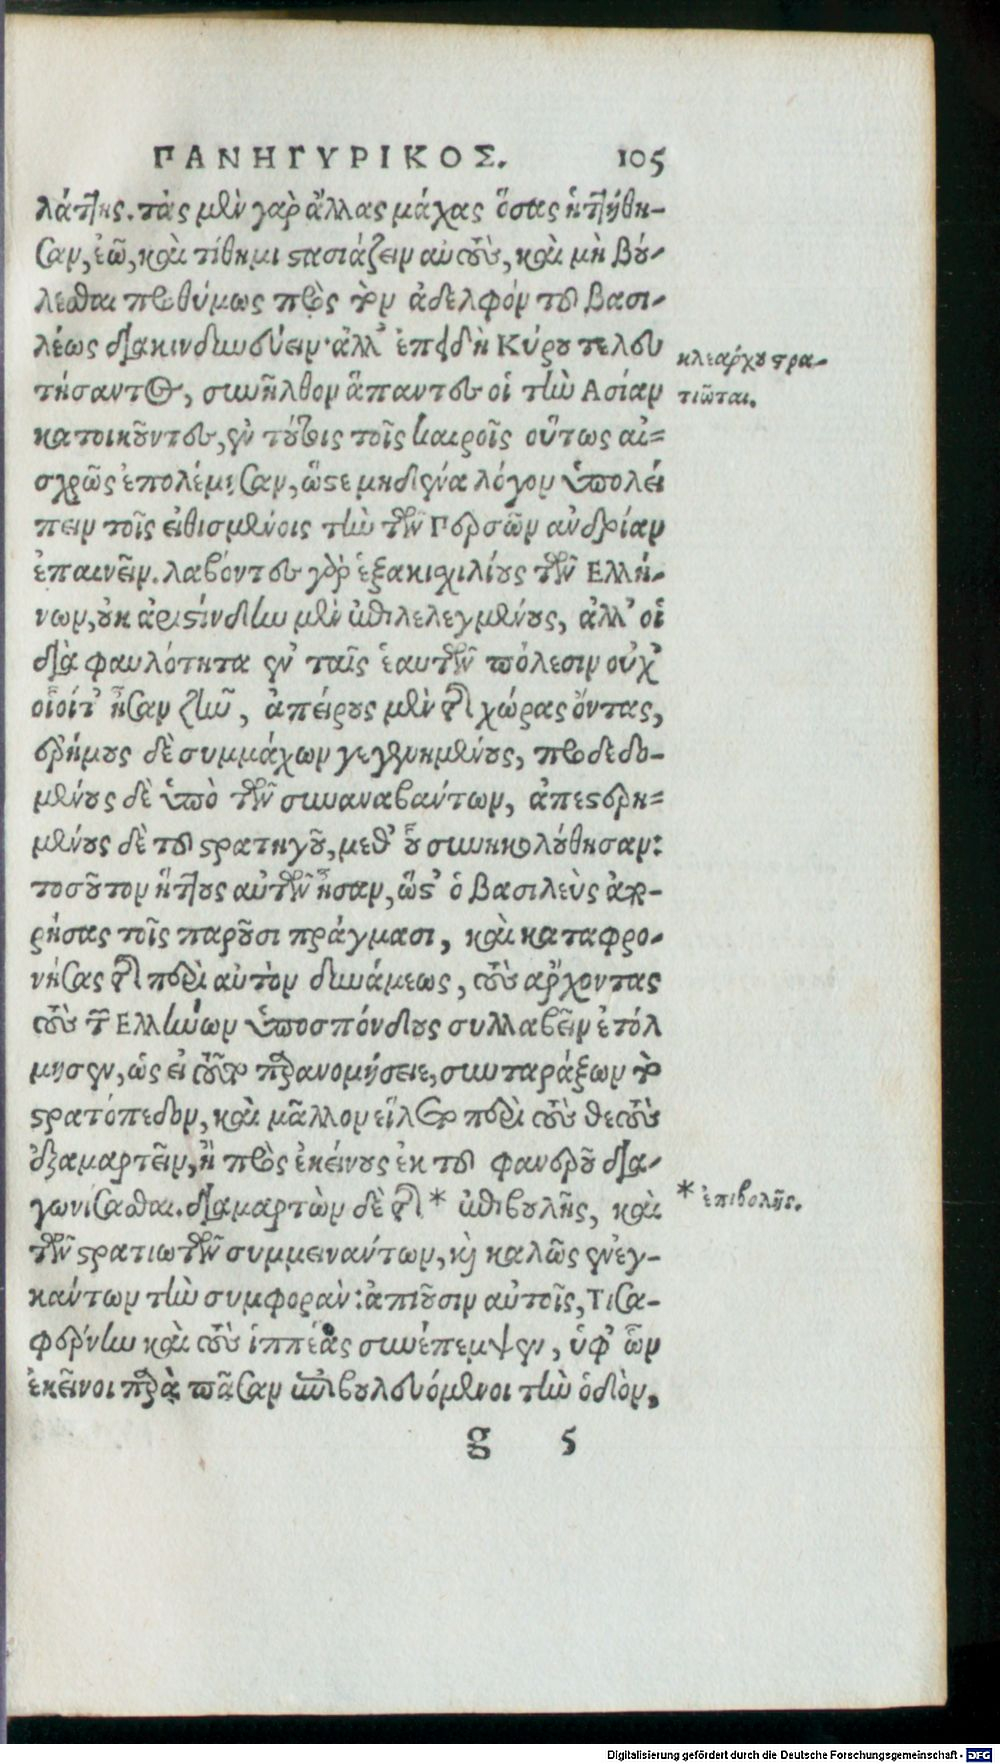 ΠΑΝΗΓΥΡΙΚΟΣ. 105
λάττης. τὰς μὲν γὰρ ἄλλας μάχας ὅσας ἡττήθη-
σαν, ἐῶ, καὶ τίθημι στασιάζειν αὐτοὺς, καὶ μὴ βού-
λεσθαι προθύμως πρὸς τὸν ἀδελφόν τοῦ βασι-
λέως διακινδυνεύειν· ἀλλ' ἐπειδὴ Κύρου τελευ
τήσαντος, συνῆλθον ἅπαντες οἱ τὴν Ασίαν
κατοικοῦντες, ἐν τούτοις τοῖς καιροῖς οὕτως αἰ=
σχρῶς ἐπολέμησαν, ὥστε μηδένα λόγον ὑπολεί
πειν τοῖς εἰθισμένοις τὴν τῶν Περσῶν ἀνδρίαν
ἐπαινεῖν. λαβόντες γὰρ ἑξακιχιλίους τῶν Ελλή-
νων, οὐκ ἀριστίνδην μὲν ἐπιλελεγμένους, ἀλλ' οἳ
διὰ φαυλότητα ἐν ταῖς ἑαυτῶν πόλεσιν οὐχ'
οἷοίτ' ἦσαν ζῆν, ἀπείρους μὲν τῆς χώρας ὄντας,
ἐρήμους δὲ συμμάχων γεγενημένους, προδεδο-
μένους δὲ ὑπὸ τῶν συναναβάντων, ἀπεστερη=
μένους δὲ τοῦ στρατηγοῦ, μεθ' οὗ συνηκολούθησαν:
τοσοῦτον ἥττους αὐτῶν ἦσαν, ὥστ' ὁ βασιλεὺς ἀπο-
ρήσας τοῖς παροῦσι πράγμασι, καὶ καταφρο-
νήσας τῆς περὶ αὐτὸν δυνάμεως, τοὺς ἄρχοντας
τοὺς τῶν Ελλήνων ὑποσπόνδους συλλαβεῖν ἐτόλ
μησεν, ὡς εἰ τοῦτο παρανομήσειε, συνταράξων τὸ
στρατόπεδον, καὶ μᾶλλον εἵλετο περὶ τοὺς θεοὺς
ἐξαμαρτεῖν, ἢ πρὸς ἐκείνους ἐκ τοῦ φανεροῦ δια-
γωνίσασθαι. διαμαρτὼν δὲ τῆς * ἐπιβουλῆς, καὶ
τῶν στρατιωτῶν συμμεινάντων, καὶ καλῶς ἐνεγ-
κάντων τὴν συμφορὰν: ἀπιοῦσιν αὐτοῖς, Τισα-
φέρνην καὶ τοὺς ἱππέας συνέπεμψεν, ὑφ' ὧν
ἐκεῖνοι παρὰ πᾶσαν ἐπιβουλευόμενοι τὴν ὁδὸν,
g 5
κλεάρχου στρα-
τιῶται.
* ἐπιβολῆς.
Digitalisierung gefördert durch die Deutsche Forschungsgemeinschaft - DFG